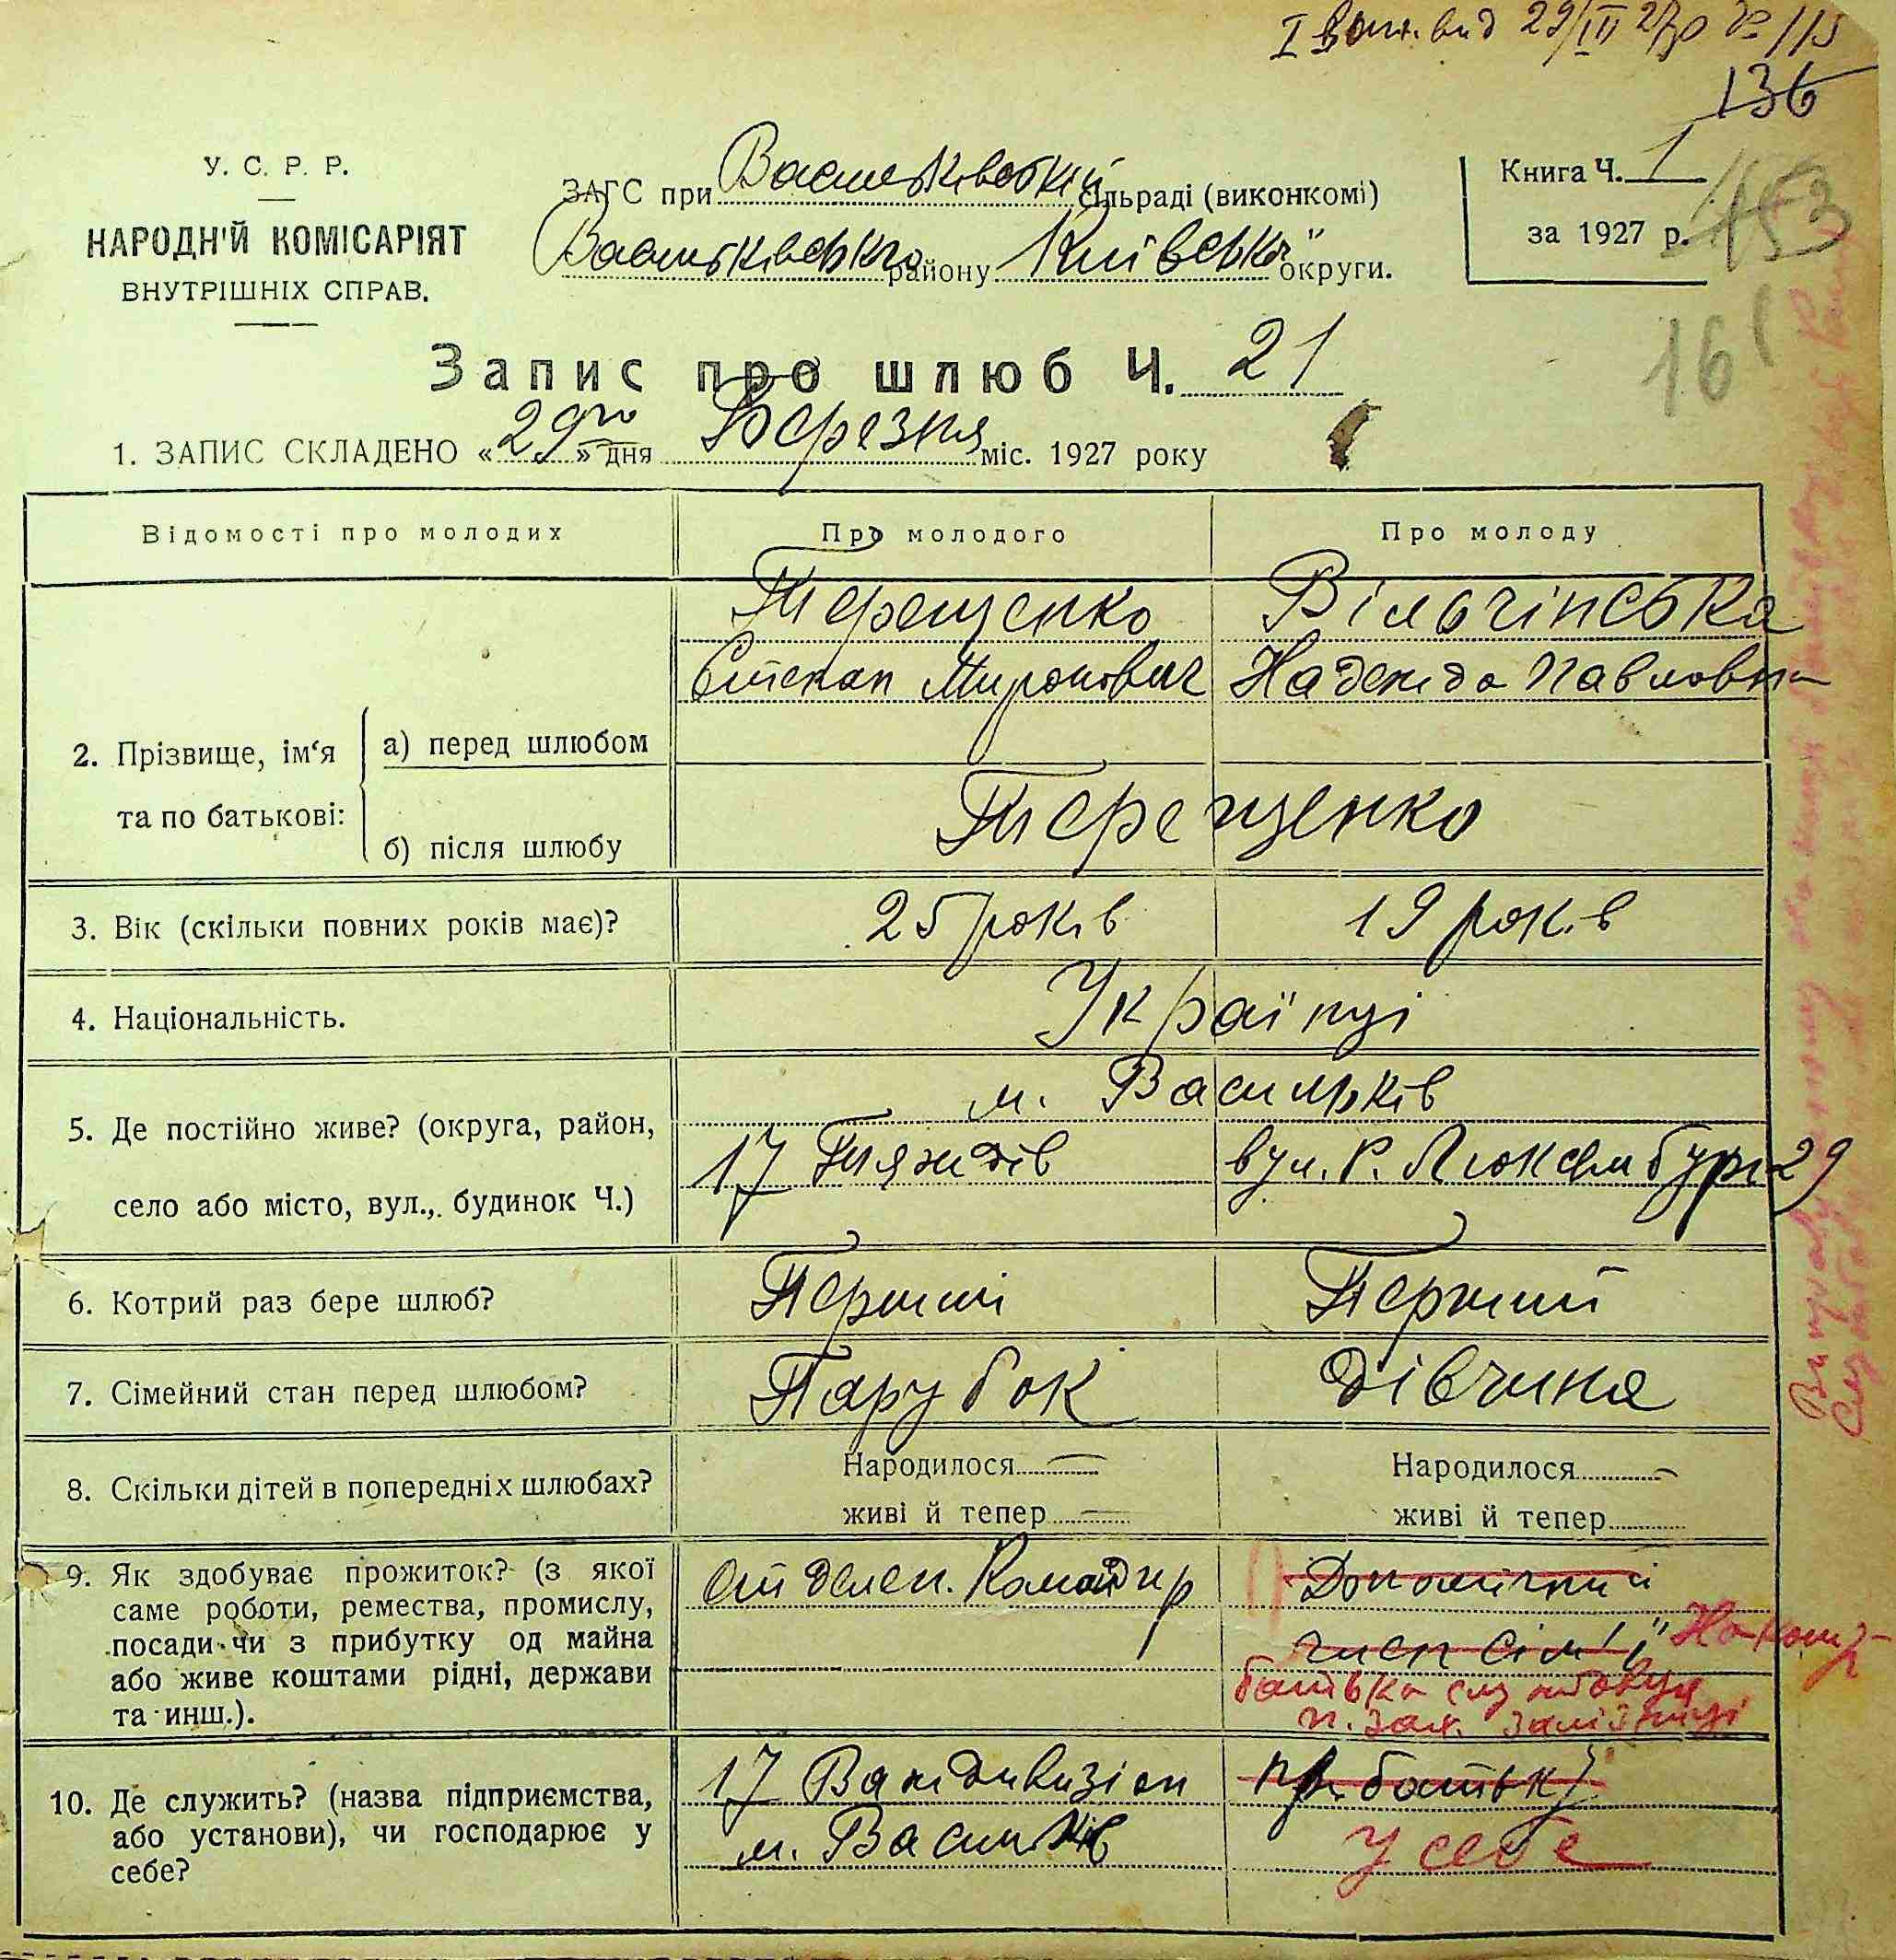 29/III 27р
136
У. С. Р. Р.
НАРОДН'Й КОМІСАРІЯТ
ВНУТРІШНІХ СПРАВ.
ЗАГС при Васильківській сільраді (виконкомі)
Васильківського району Київської округи.
Книга Ч. 1
за 1927 р.
153
161
Запис про шлюб Ч. 21
1. ЗАПИС СКЛАДЕНО «29го» дня Березня міс. 1927 року
Відомості про молодих Про молодого Про молоду
2. Прізвище, ім‘я та по батькові:
а) перед шлюбом
Терещенко Вільчінська
Степан Миронович Надежда Павловна
б) після шлюбу
Терещенко
3. Вік (скільки повних років має)? 25 років 19 років
4. Національність. Українці
5. Де постійно живе? (округа, район,
село або місто, вул.,. будинок Ч.)
м. Васильків
17 вул. Р. Люксембург 29
6. Котрий раз бере шлюб? Перший Перший
7. Сімейний стан перед шлюбом? Парубок Дівчина
8. Скільки дітей в попередніх шлюбах? Народилося — Народилося —
живі й тепер — живі й тепер
9. Як здобуває прожиток? (з якої
саме роботи, ремества, промислу,
посади чи з прибутку од майна
або живе коштами рідні, держави
та инш.).
Отделен. Командир Допомічний
член сім'ї На кошт
батька службовця
залізниці
10. Де служить? (назва підприємства,
або установи), чи господарює у
себе?
17 м. Васильків
при батьку
У себе